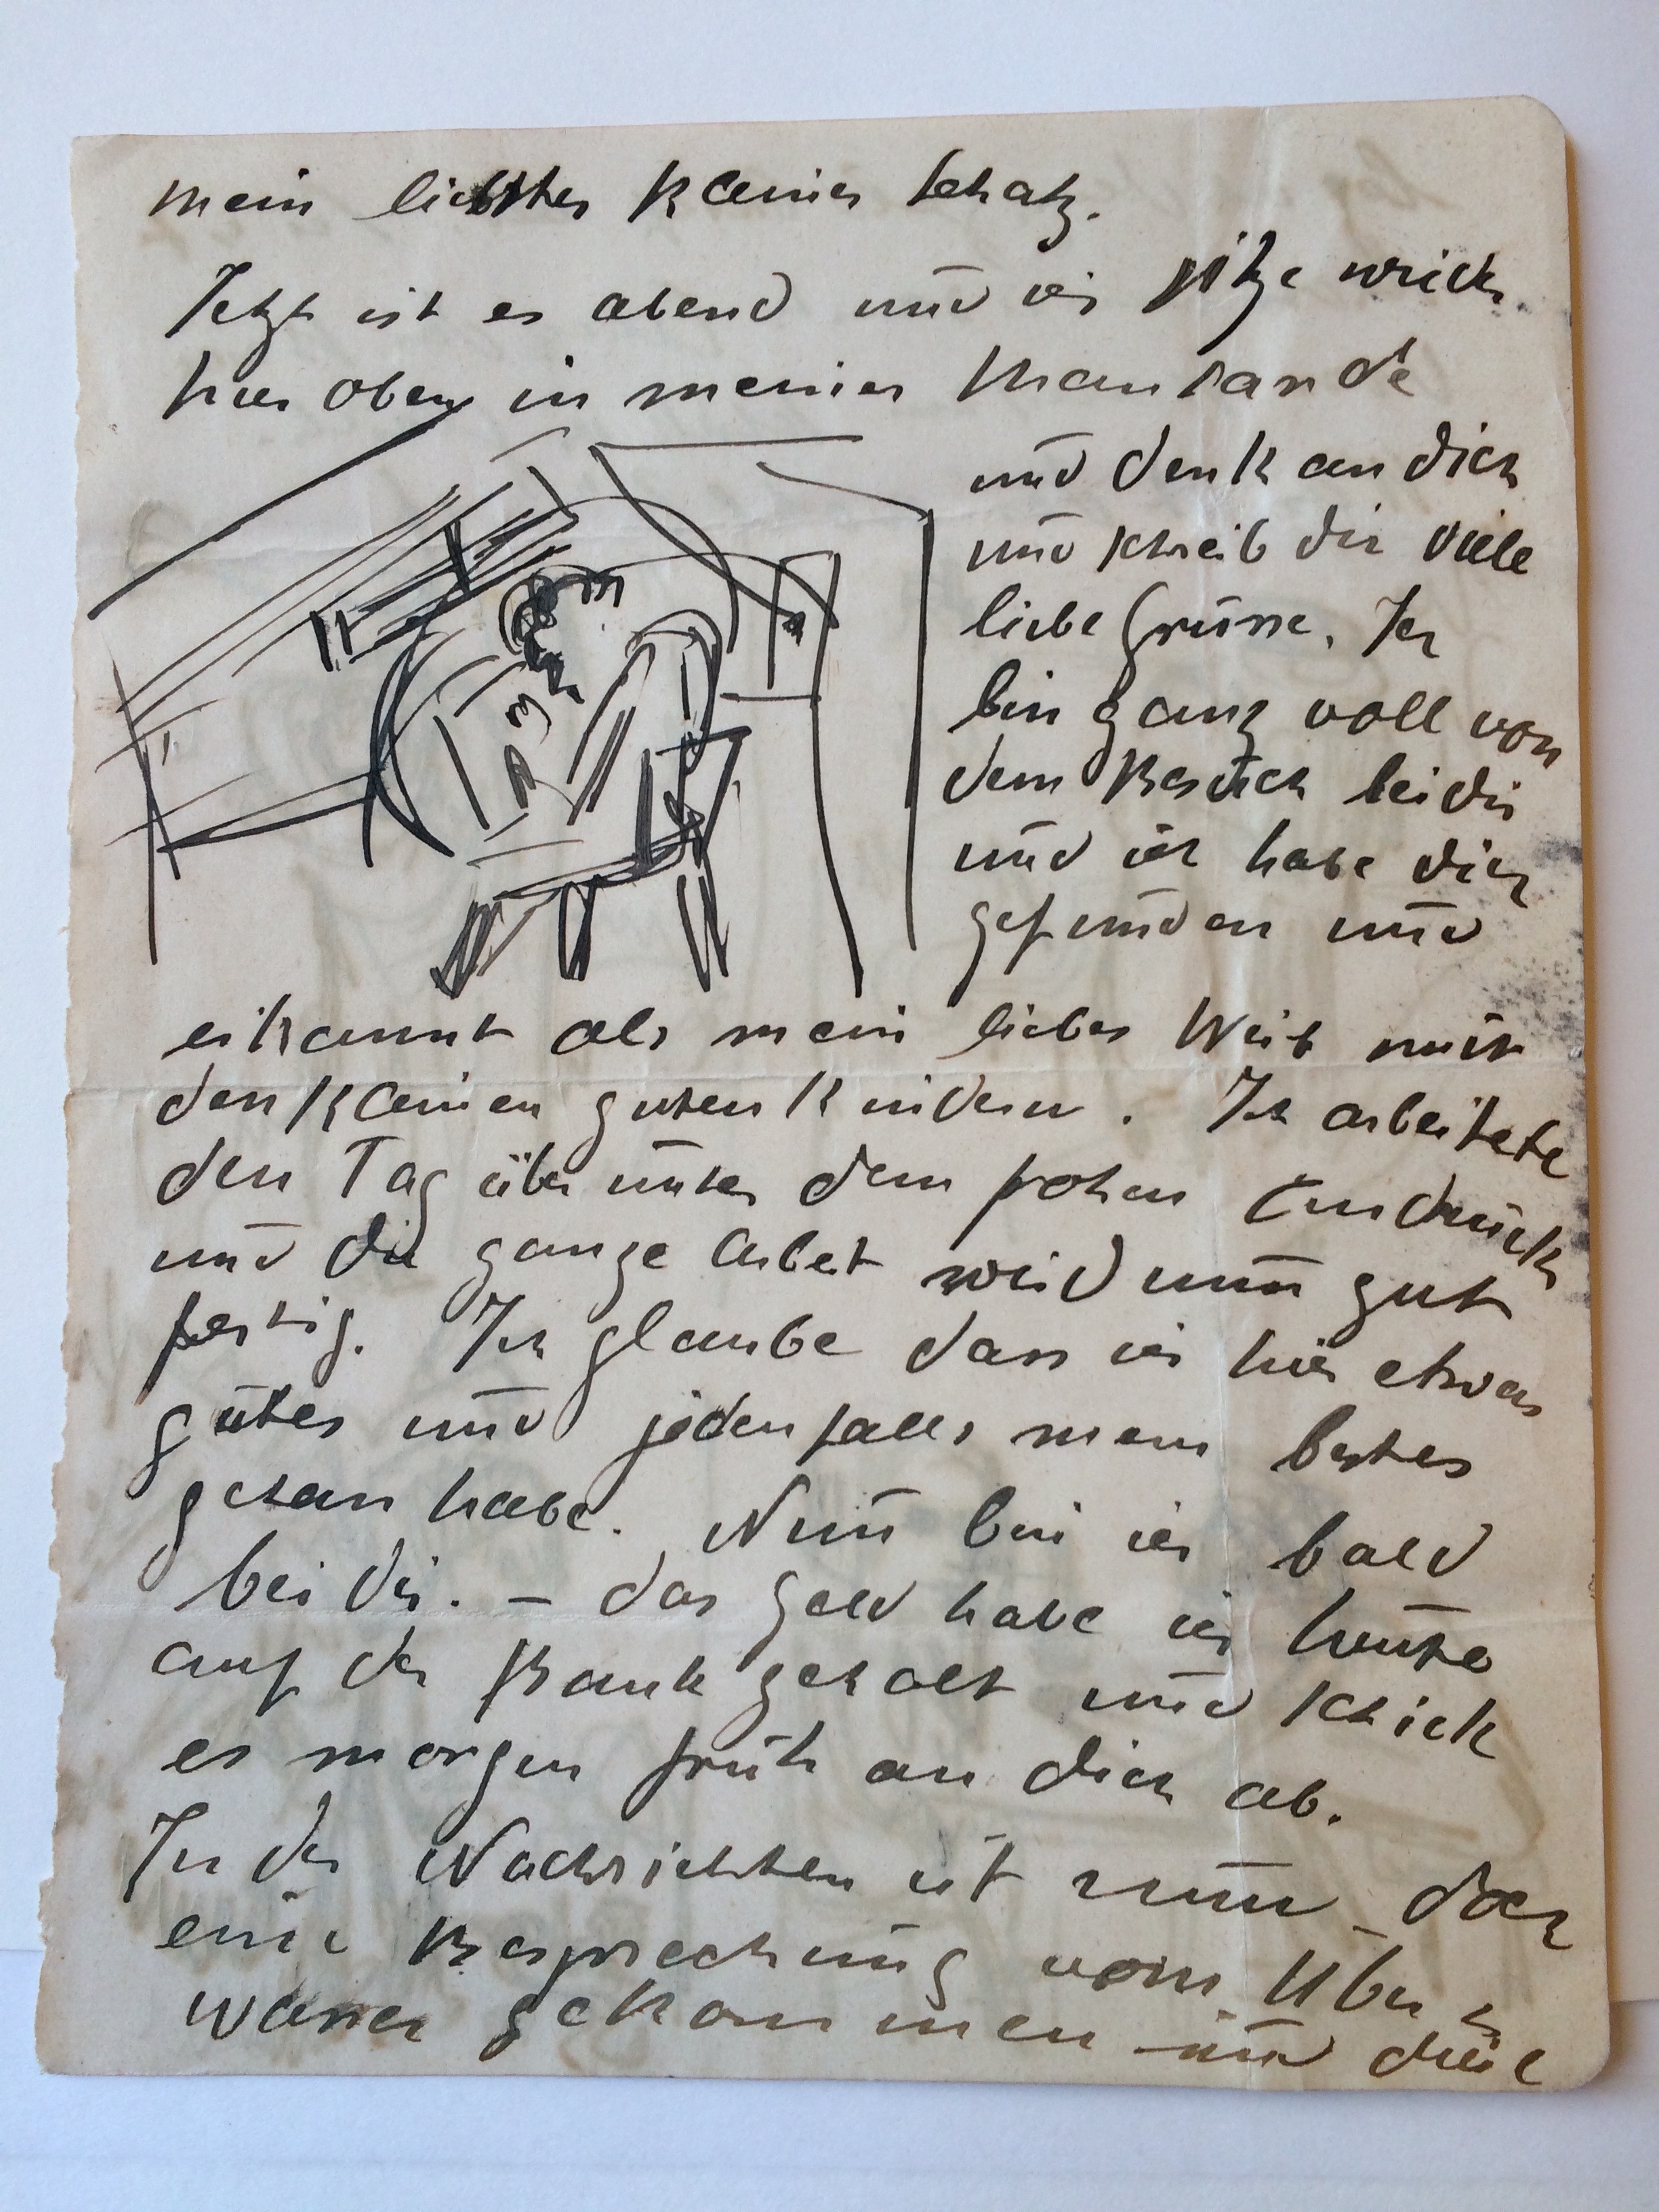 mein liebster kleiner Schatz.
Jetzt ist es abend und ich sitze wieder
hier oben in meiner Mansarde
und denk an dich
und schreib dir viele
liebe Grüsse. Ich
bin ganz voll von
dem Besuch bei dir
und ich habe dich
gefunden und
erkannt als mein liebes Weib mit
den kleinen guten Kindern. Ich arbeitete
den Tag über unter dem frohen Eindruck
und die ganze Arbeit wird nun gut
fertig. Ich glaube dass ich hier etwas
gutes und jedenfalls mein bestes
getan habe. Nun bin ich bald
bei dir. – das Geld habe ich heute
auf der Bank geholt und schick
es morgen früh an dich ab.
In der Nachrichten ist nun doch
eine Besprechung vom Über
wasser gekommen und